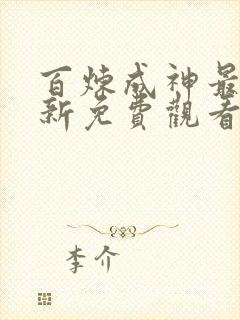 百炼成神最
新免費觀看
李介